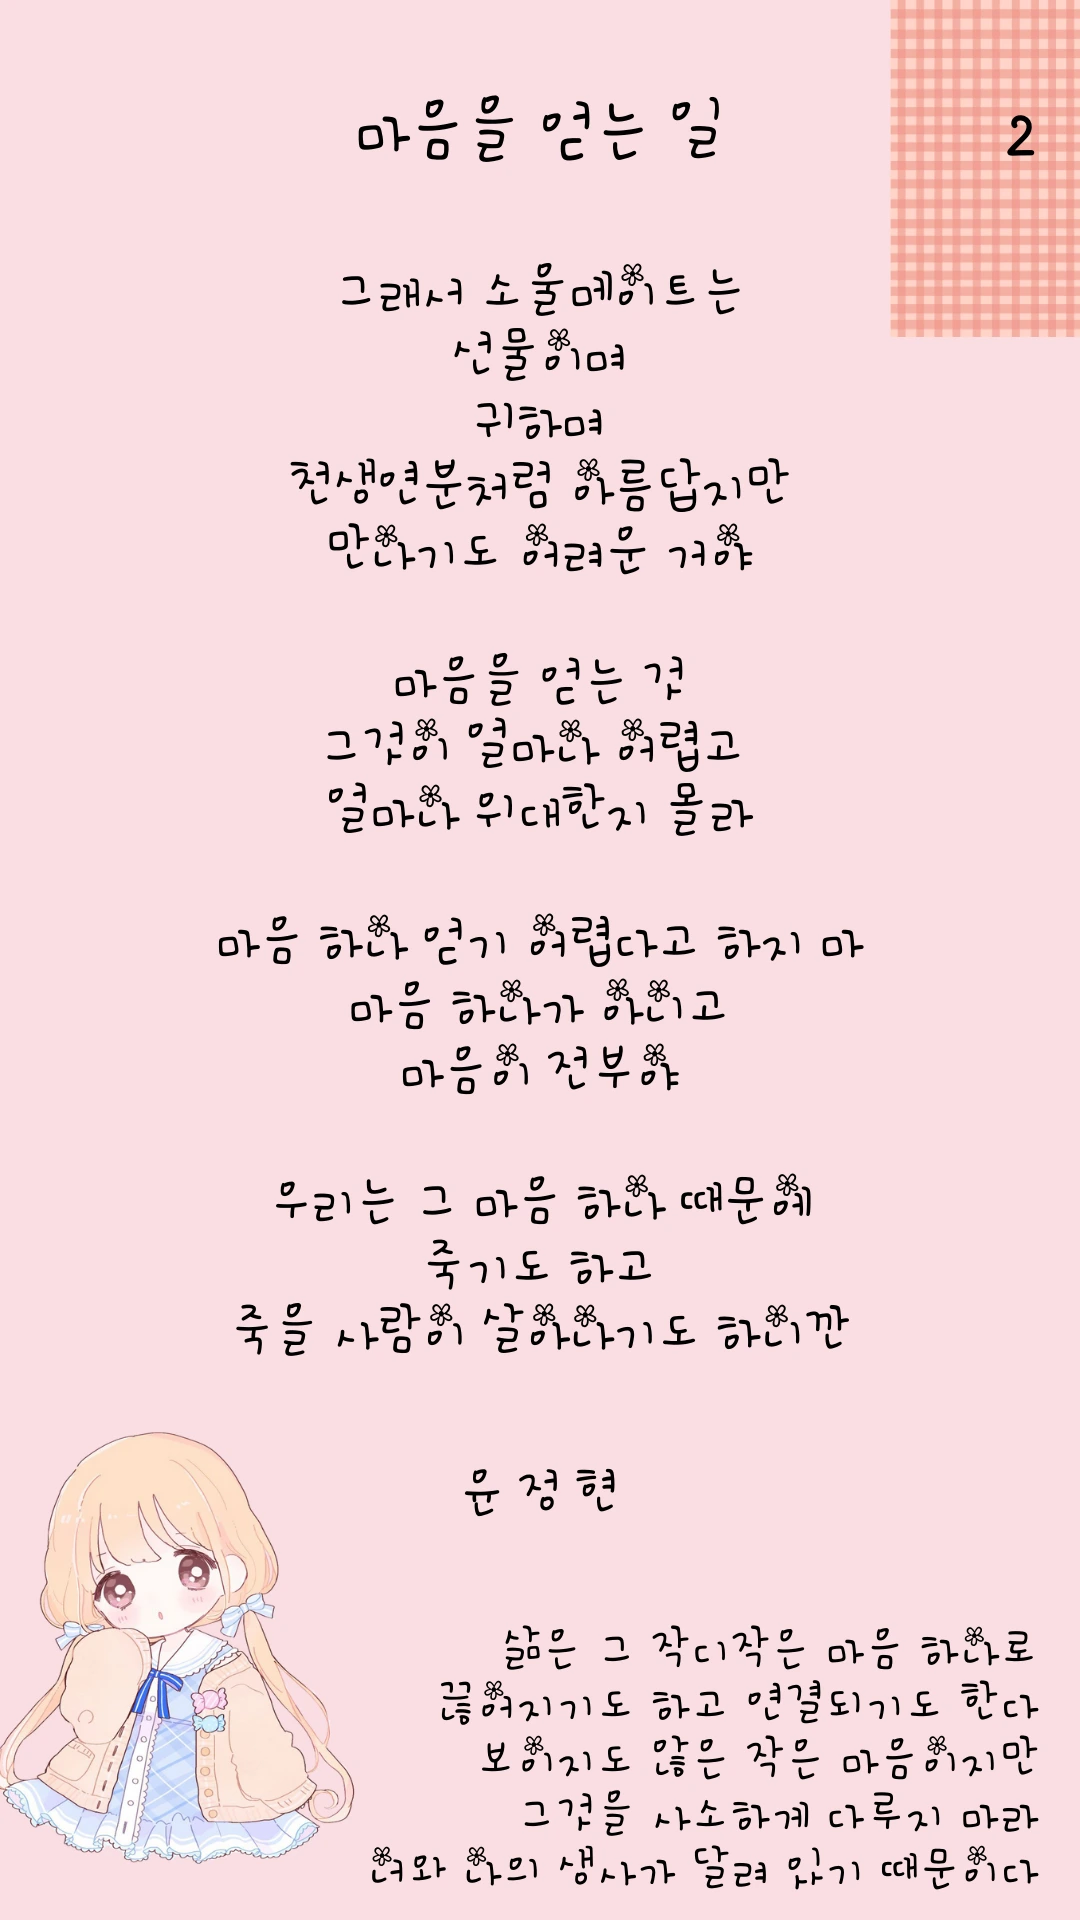 마음을 얻는 일
2
그래서 소울메이트는
선물이며
귀하며
천생연분처럼 아름답지만
만나기도 어려운 거야
마음을 얻는 것
그것이 얼마나 어렵고
얼마나 위대한지 몰라
마음 하나 얻기 어렵다고 하지 마
마음 하나가 아니고
마음이 전부야
우리는 그 마음 하나 때문에
죽기도 하고
죽을 사람이 살아나기도 하니깐
윤정현
삶은 그 작디작은 마음 하나로
끊어지기도 하고 연결되기도 한다
보이지도 않은 작은 마음이지만
그것을 사소하게 다루지 마라
너와 나의 생사가 달려 있기 때문이다